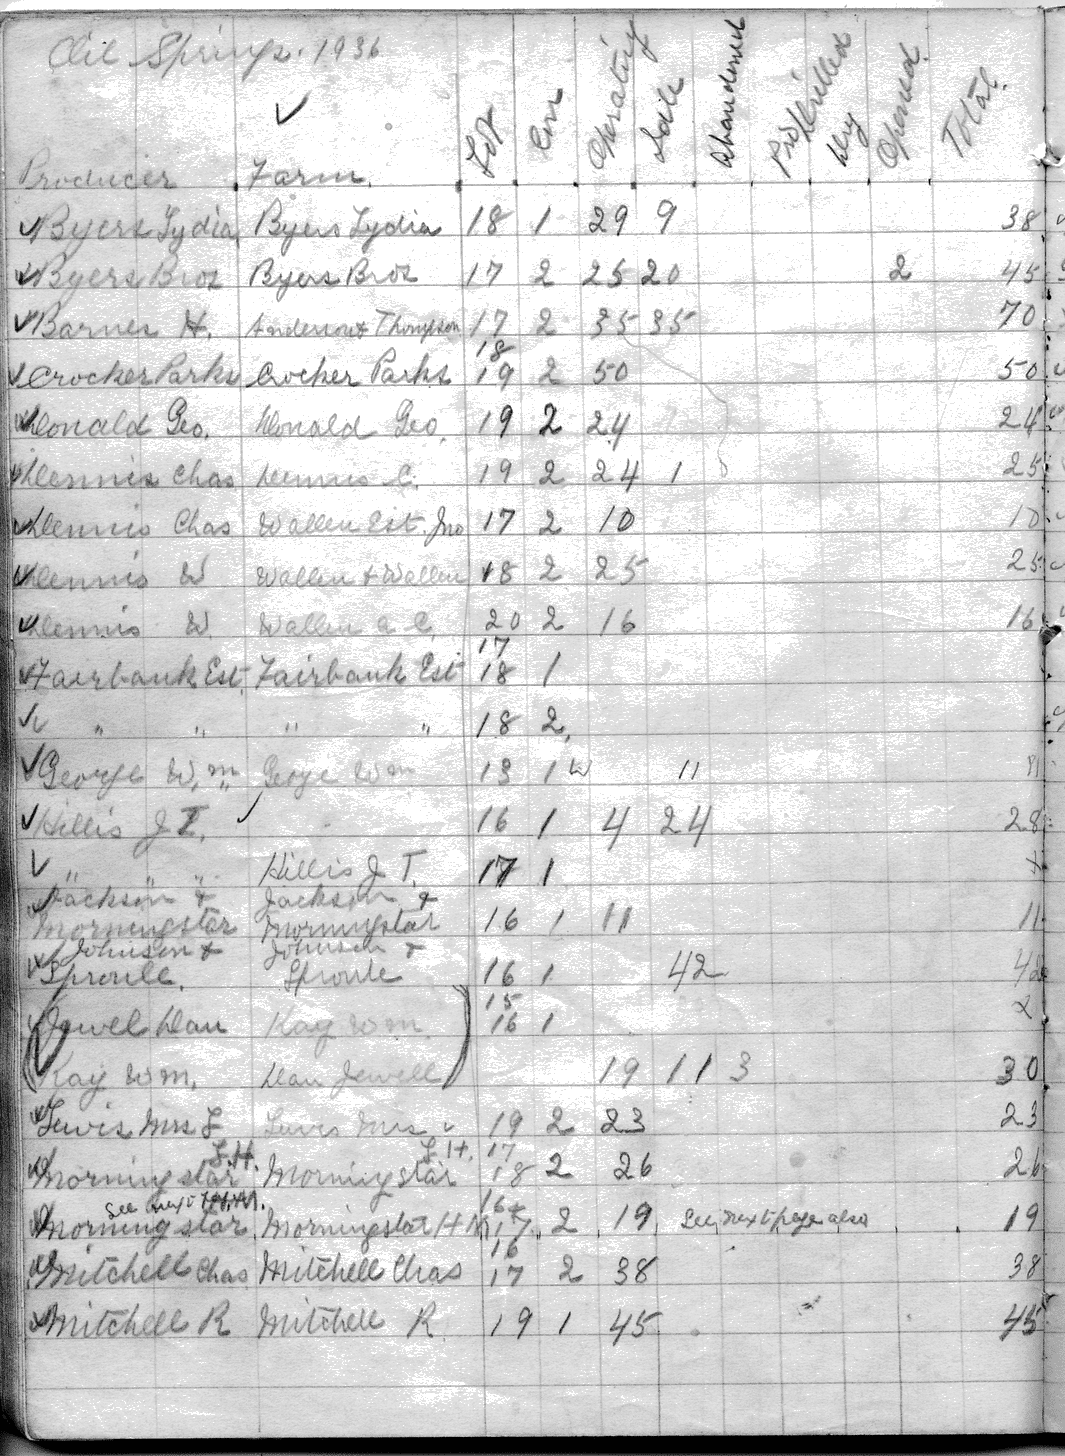 Oil Springs. 1936
Producer Farm. Lot Con Operating Idle Abandoned Drilled Dry Opened. Total.
Byers Lydia Byers Lydia 18 1 29 9 38
Byers Bros Byers Bros 17 2 25 20 2 45
Barnes H. Anderson & Thompson 17 2 35 35 70
18
Crocker Parks Crocker Parks 19 2 50 50
Donald Geo. Donald Geo. 19 2 24 24
Dennis Chas Dennis C. 19 2 24 1 25
Dennis Chas Wallen Est. Jno 17 2 10 10
Dennis W Wallen & Wallen 18 2 25 25
Dennis W. Wallen C. 20 2 16 16
17
Fairbank Est. Fairbank Est 18 1
" " " " 18 2
George Wm George Wm 1 11
Hillis J T. 16 1 4 24 28
" " " Hillis J T. 17 1
Jackson & Jackson &
Morningstar Morningstar 16 1 11 11
Johnson & Johnson &
Sproule. Sproule 16 1 42 42
15
Jewel Dan Kay Wm 16 1
Kay Wm. Dan Jewell 19 11 3 30
Lewis Mrs L Lewis Mrs 19 2 23 23
L.H. L.H. 17
Morningstar Morningstar 18 2 26 26
See next 16 &
Morningstar Morningstar H M 17 2 19 See next page also 19
16
Mitchell Chas Mitchell Chas 17 2 38 38
Mitchell R Mitchell R 19 1 45 45